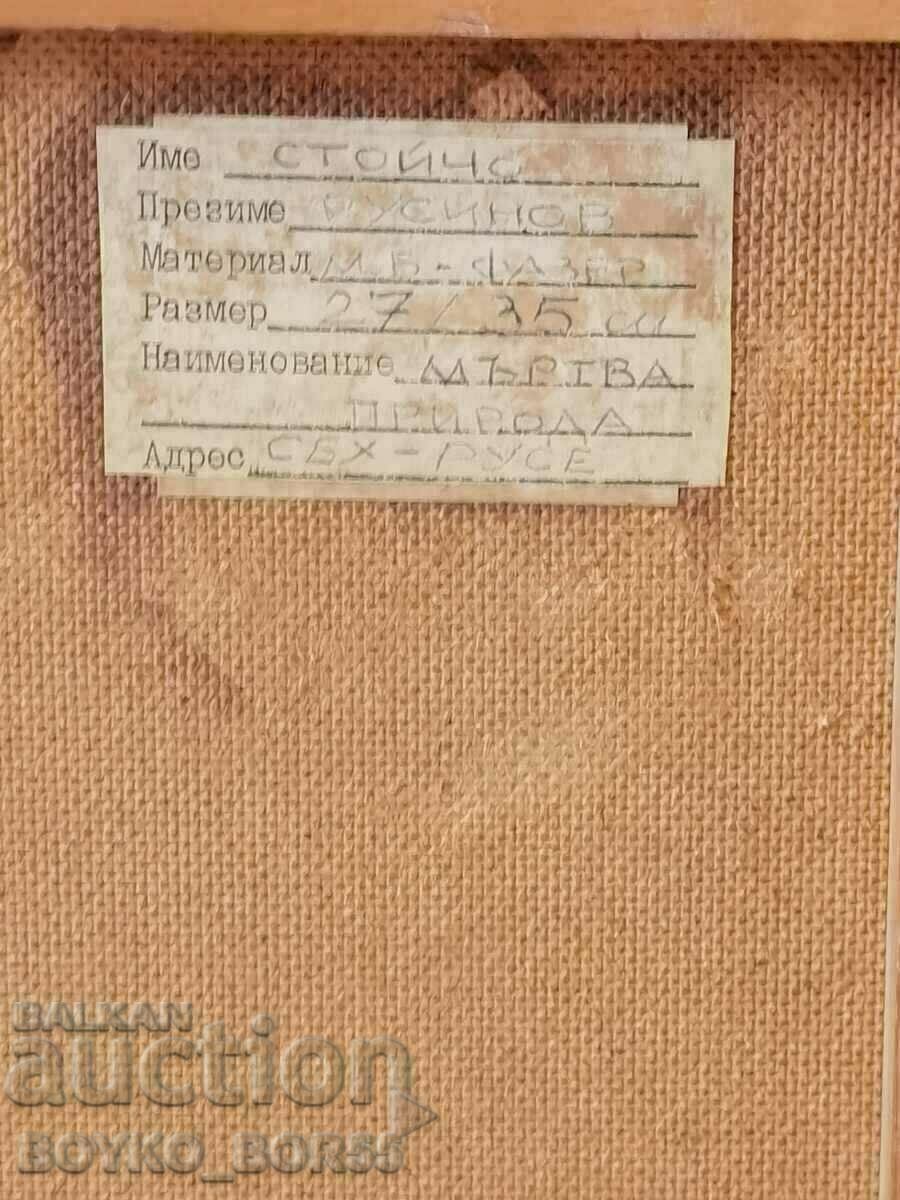 Име СТОЙЧО
Презиме РУСИНОВ
Материал М.Б-ФАЗЕР
Размер 27/35 см
Наименование МЪРТВА
ПРИРОДА
Адрес СБХ-РУСЕ
BALKAN
auction
BOYKO_BOR55